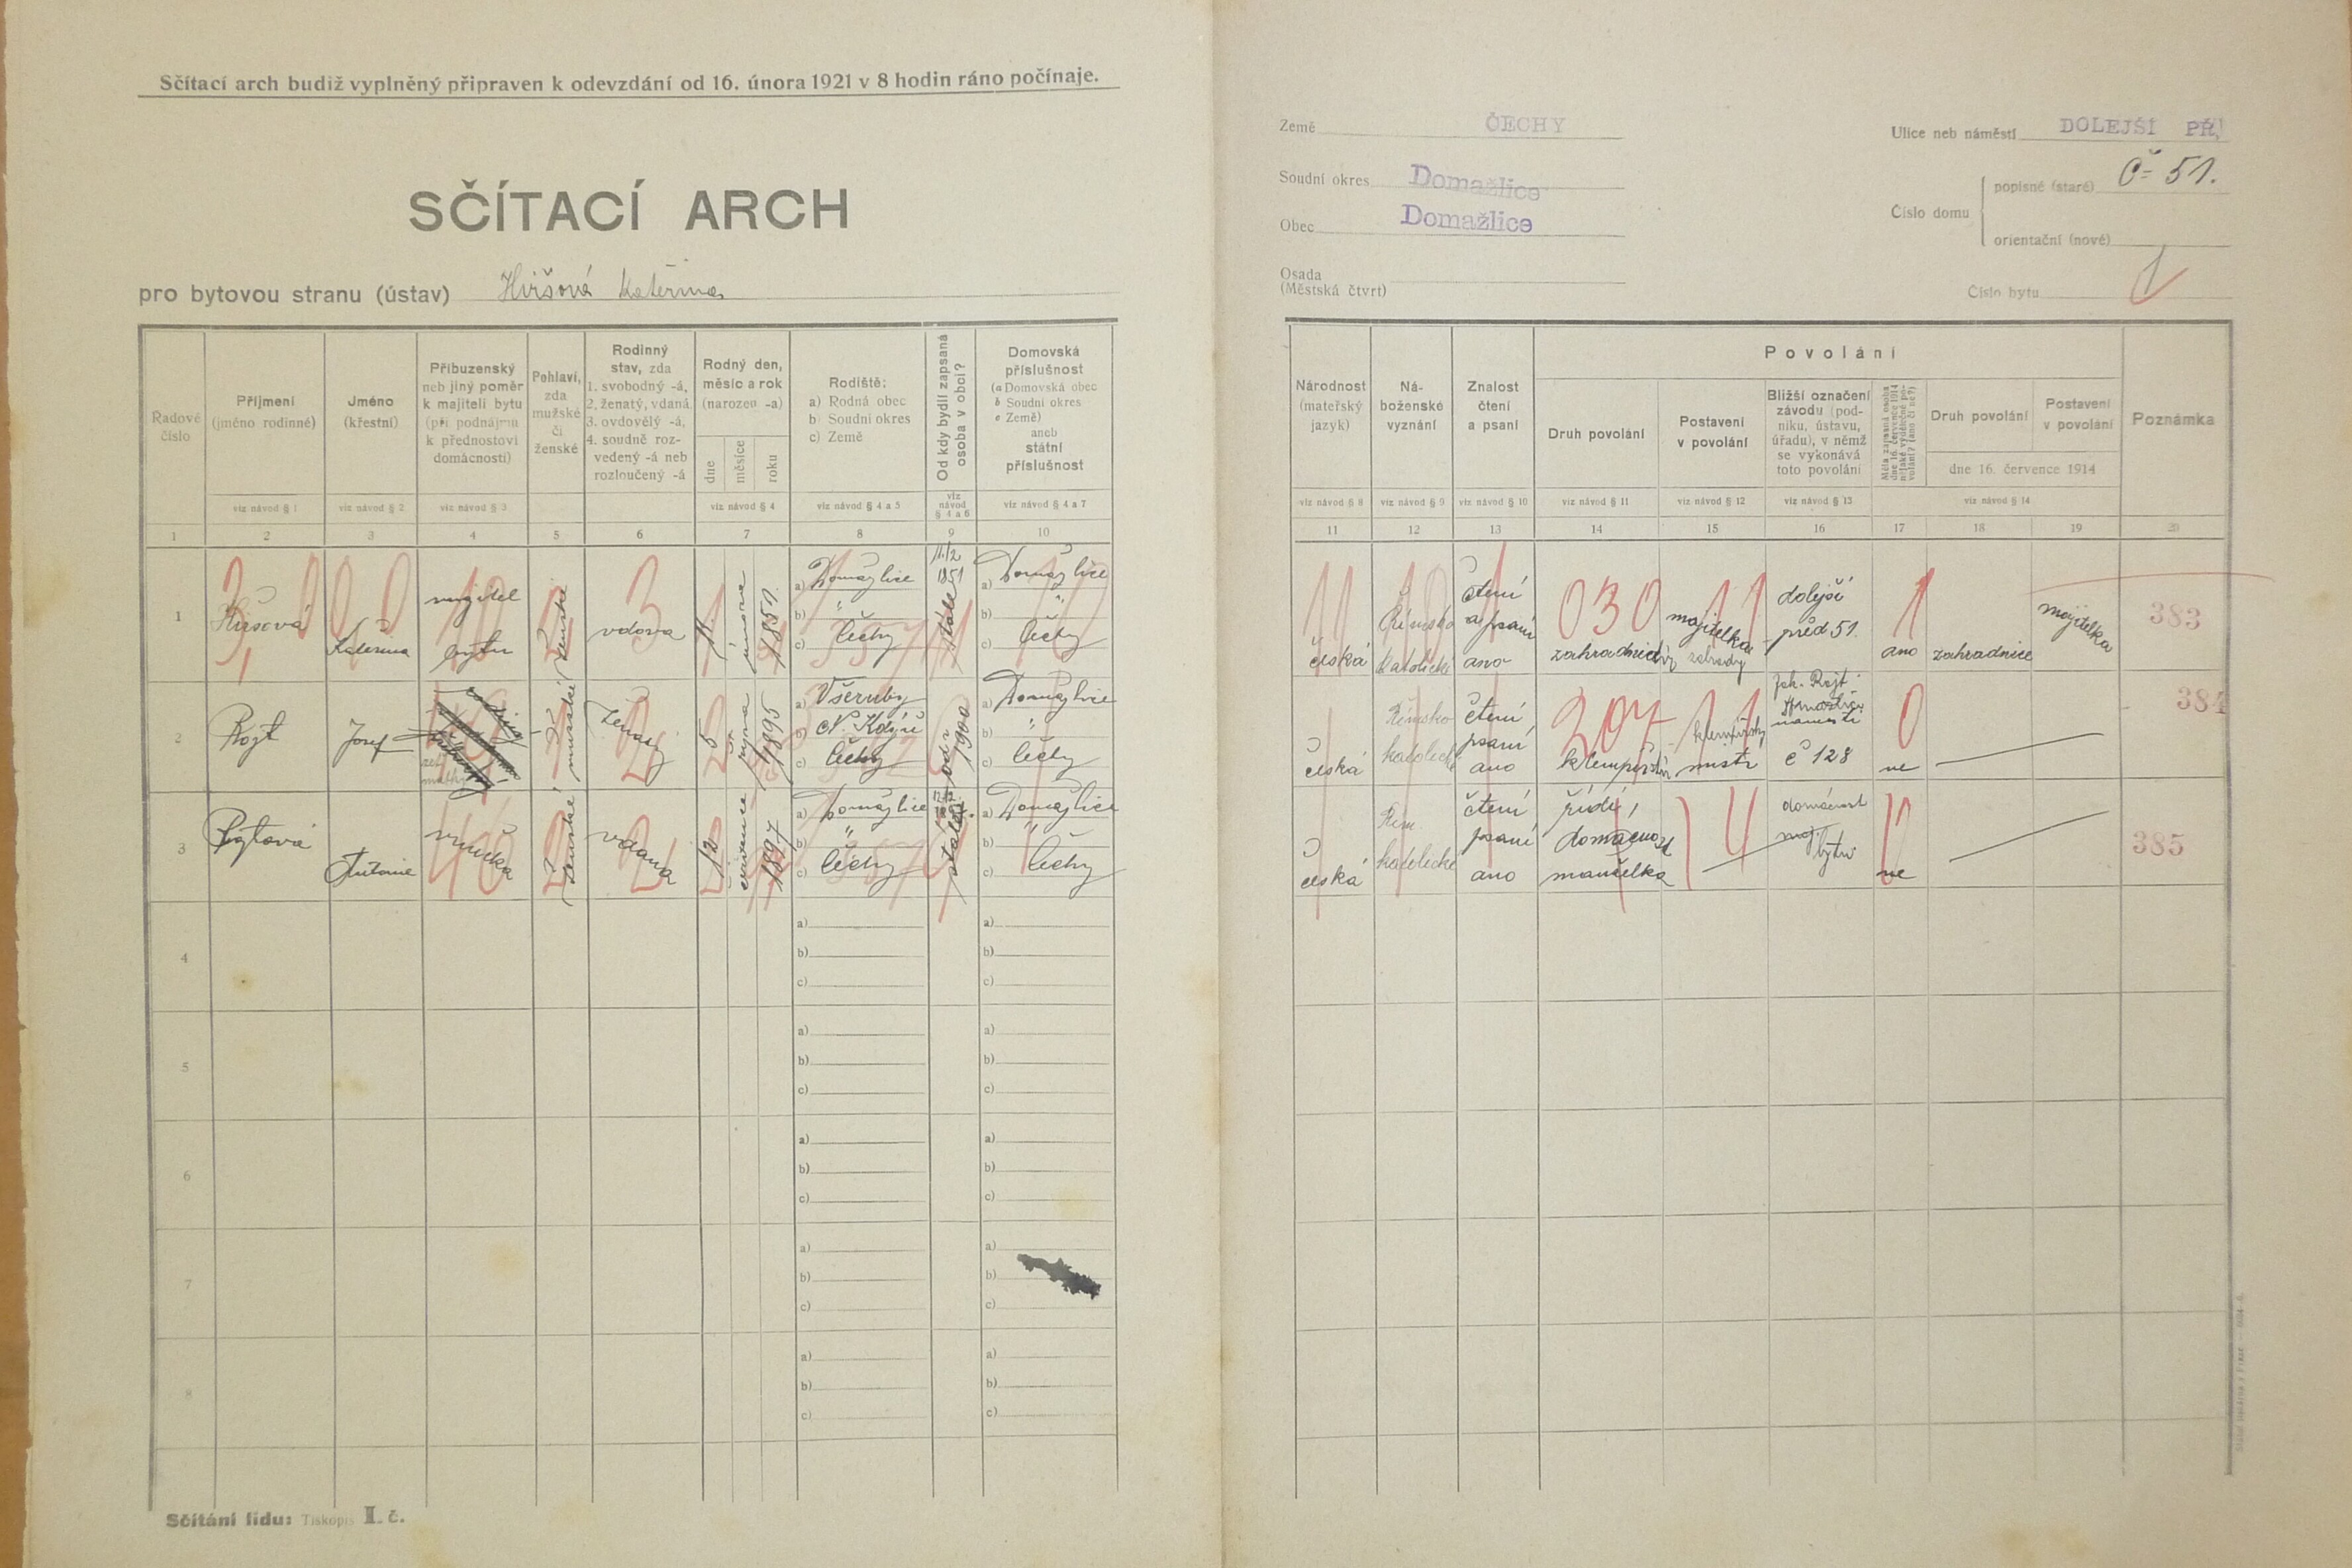 Sčítací arch budiž vyplněný připraven k odevzdání od 16. února 1921 v 8 hodin ráno počínaje.
SČÍTACÍ ARCH
pro bytovou stranu (ústav) Hiršová Kateřina
Země ČECHY
Soudní okres Domažlice
Obec Domažlice
Osada
(Městská čtvrt)
Ulice neb náměstí DOLEJŠÍ PŘ.
Číslo domu
popisné (staré) č= 51.
orientační (nové)
Číslo bytu 1
Řadové číslo
Příjmení
(jméno rodinné)
viz návod § 1
Jméno
(křestní)
viz návod § 2
Příbuzenský
neb jiný poměr
k majiteli bytu
(při podnájmu
k přednostovi
domácnosti)
viz návod § 3
Pohlaví,
zda
mužské
či
ženské
Rodinný
stav, zda
1. svobodný -á,
2. ženatý, vdaná
3. ovdovělý -á,
4. soudně roz-
vedený -á neb
rozloučený -á
Rodný den,
měsíc a rok
(narozen -a)
dne
měsíce
roku
viz návod § 4
Rodiště:
a) Rodná obec
b) Soudní okres
c) Země
viz návod § 4 a 5
Od kdy bydlí zapsaná
osoba v obci?
viz
návod
§ 4 a 6
Domovská
příslušnost
(a Domovská obec
b Soudní okres
c Země)
aneb
státní
příslušnost
viz návod § 4 a 7
1 2 3 4 5 6 7 8 9 10
Národnost
(mateřský
jazyk)
viz návod § 8
Ná-
boženské
vyznání
viz návod § 9
Znalost
čtení
a psaní
viz návod § 10
Povolání
Druh povolání
viz návod § 11
Postavení
v povolání
viz návod § 12
Bližší označení
závodu (pod-
niku, ústavu,
úřadu), v němž
se vykonává
toto povolání
viz návod § 13
Měla zapsaná osoba
dne 16. července 1914
nějaké výdělečné po-
volání? (ano či ne?)
Druh povolání
Postavení
v povolání
dne 16. července 1914
viz návod § 14
Poznámka
11 12 13 14 15 16 17 18 19 20
1
Hiršová
Kateřina
majitel
bytu
ženské
vdova
11.
února
1851.
a) Domažlice
b) "
c) Čechy
11./2.
1851
stále
a) Domažlice
b) "
c) Čechy
česká
Římsko
katolické
čtení
a psaní
ano
030
zahradnictví
majitelka
zahrady
dolejší
před 51.
ano
zahradnice
majitelka
383
2
Rojt
Josef
mužské
ženatý
25
října
1895
a) Všeruby
b) N. Kdýně
c) Čechy
1900
a) Domažlice
b) "
c) Čechy
česká
Římsko
katolické
čtení
psaní
ano
207
klempířství
klempířský
mistr
Joh. Rojt
náměstí
č 128
ne
384
3
Rojtová
Antonie
vnučka
ženské
vdaná
12
července
1897
a) Domažlice
b) "
c) Čechy
stále.
a) Domažlice
b) "
c) Čechy
česká
Řím
katolické
čtení
psaní
ano
řídí
domácnost
manželka
domácnost
maj.
bytu
ne
385
4
a)
b)
c)
a)
b)
c)
5
a)
b)
c)
a)
b)
c)
6
a)
b)
c)
a)
b)
c)
7
a)
b)
c)
a)
b)
c)
8
a)
b)
c)
a)
b)
c)
Sčítání lidu: Tiskopis I. č.